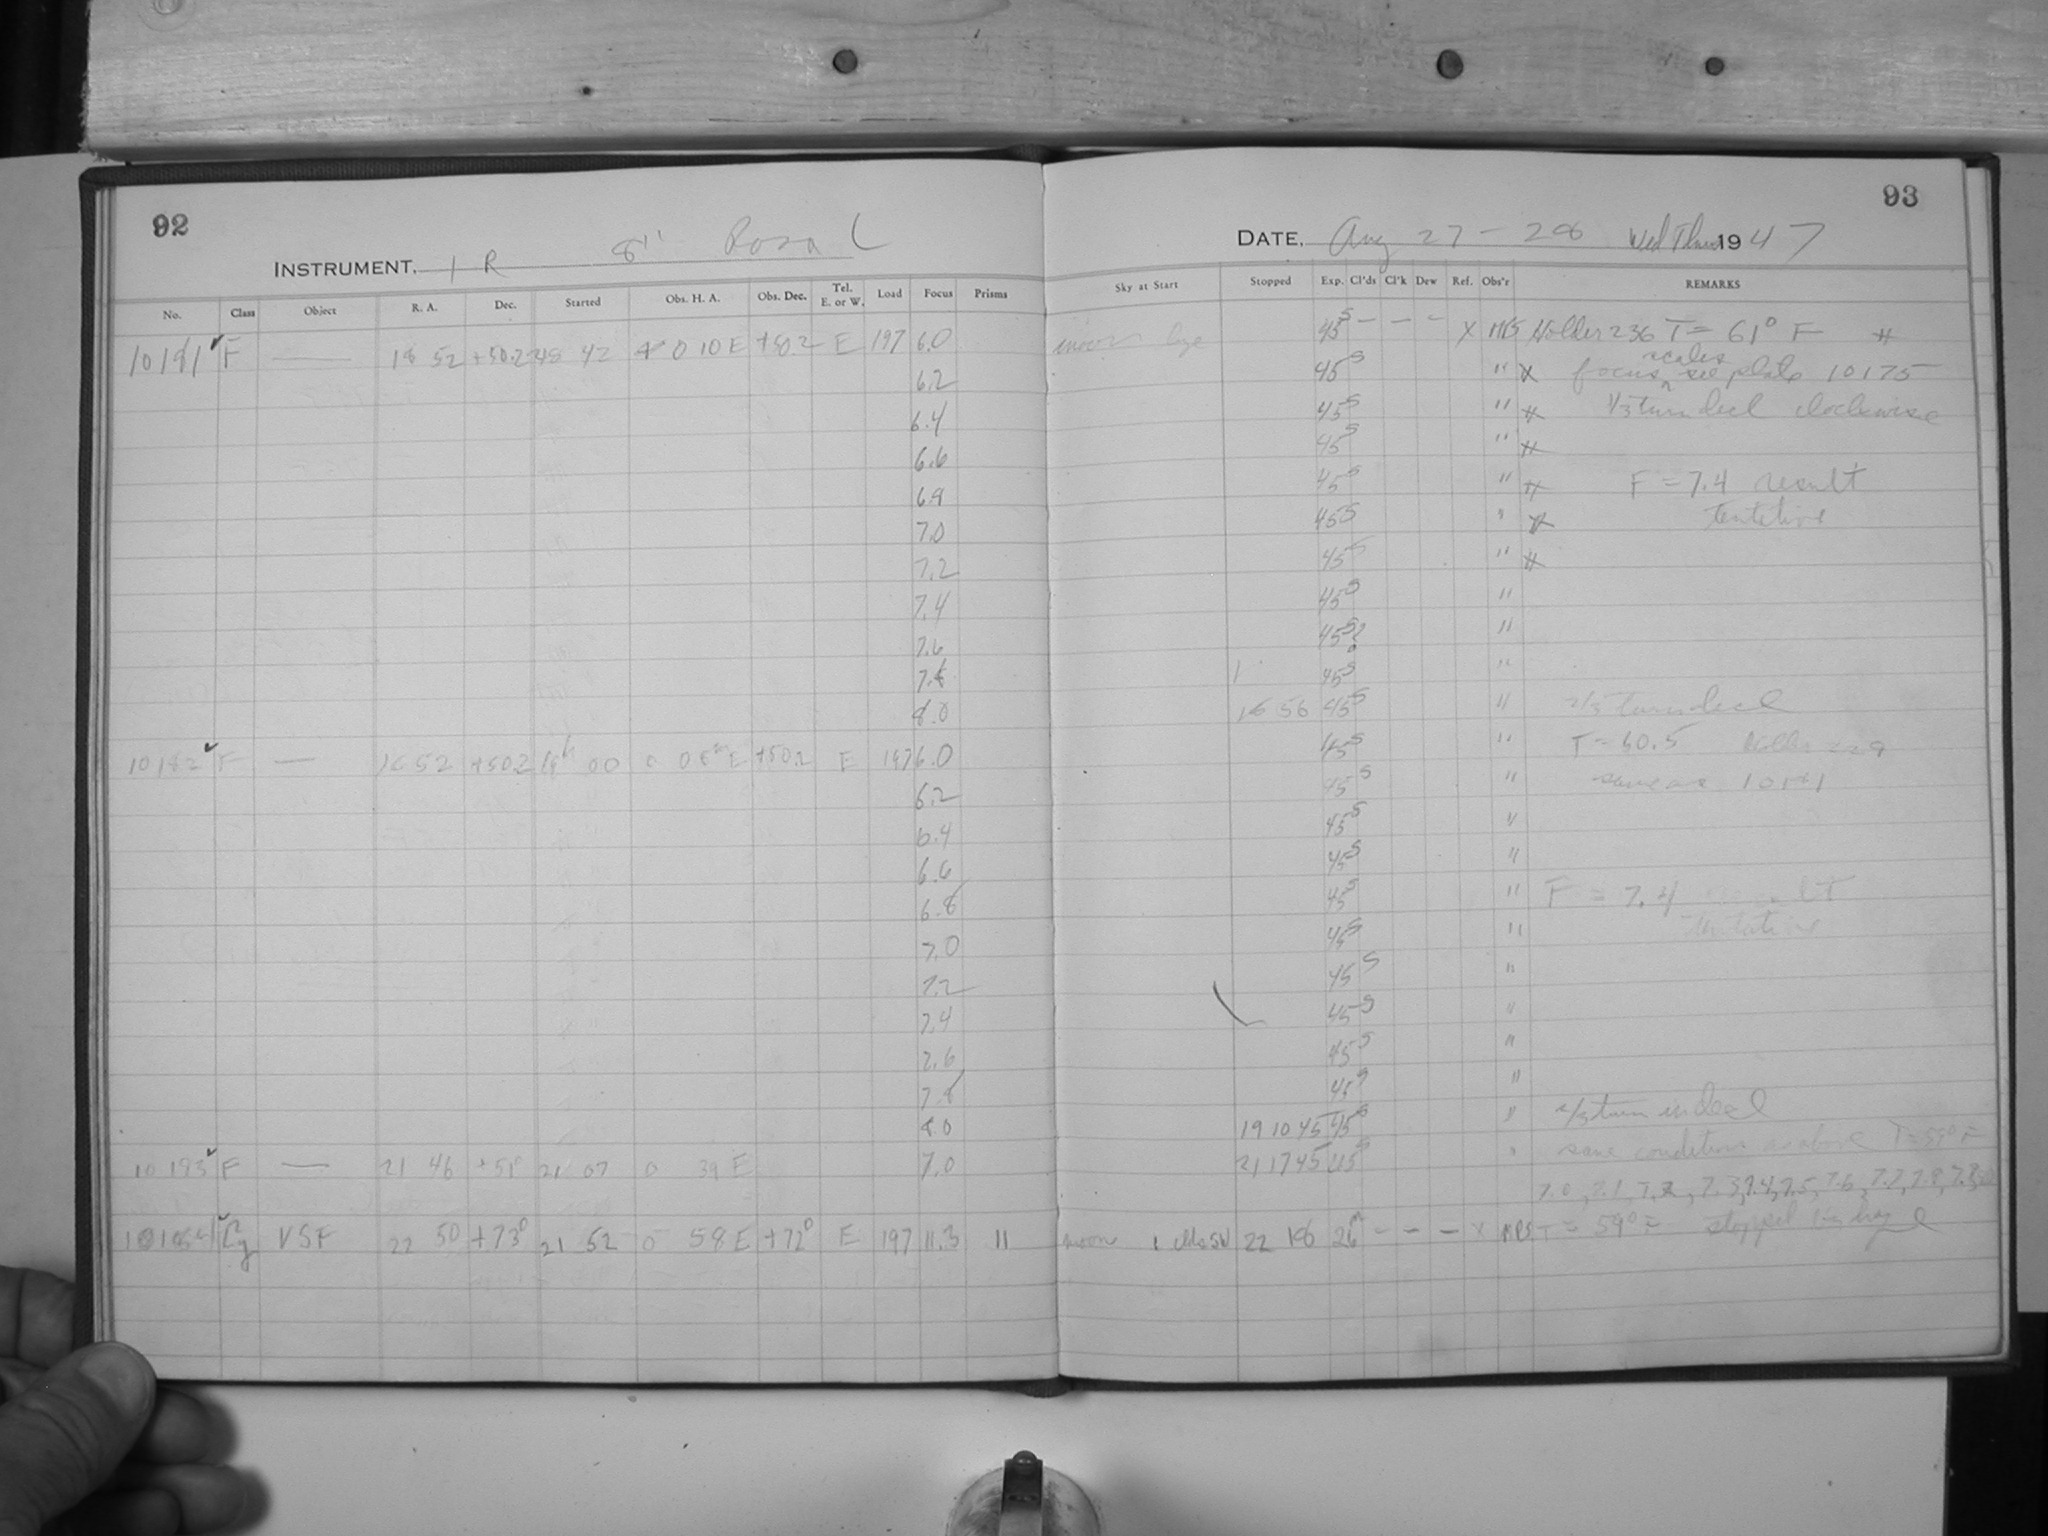 92
INSTRUMENT. I R 8" Ross L
No. Class Object R. A. Dec. Started Obs. H. A. Obs. Dec. Tel. E. or W. Load Focus Prisms
10181 F — 18 52 +50.2 18 42 0 10 E +50.2 E 197 6.0
6.2
6.4
6.6
6.8
7.0
7.2
7.4
7.6
7.8
8.0
10182 F — 18 52 +50.2 00 0 08 E +50.2 E 197 6.0
6.2
6.4
6.6
6.8
7.0
7.2
7.4
7.6
7.8
8.0
10 183 F — 21 46 +51° 21 07 0 39 E 7.0
VSF 22 50 +73° 21 52 0 58 E +72° E 197 11.3 11
93
DATE, Aug 27 - 28 Wed Thurs 1947
Sky at Start Stopped Exp. Cl'ds Cl'k Dew Ref. Obs'r REMARKS
moon 45s — — — X Holder 236 T = 61° F
45s " focus scales see plate 10175
45s " 1/3 turn decl clockwise
45s "
45s " F = 7.4 result
45s " tentative
45s "
45s "
45s? "
45s "
56 45s " 2/3 turn decl
45s " T = 60.5
45s " same as 10181
45s "
45s "
45s " F = 7.4
45s " tentative
45s "
45s "
45s "
45s "
19 10 45 45s " turn in decl
21 17 45 45s " same conditions as above T = 59° F
7.0, 7.1, 7.2, 7.3, 7.4, 7.5, 7.6, 7.7, 7.8,
moon 22 18 26m — — — X T = 59° F stopped by